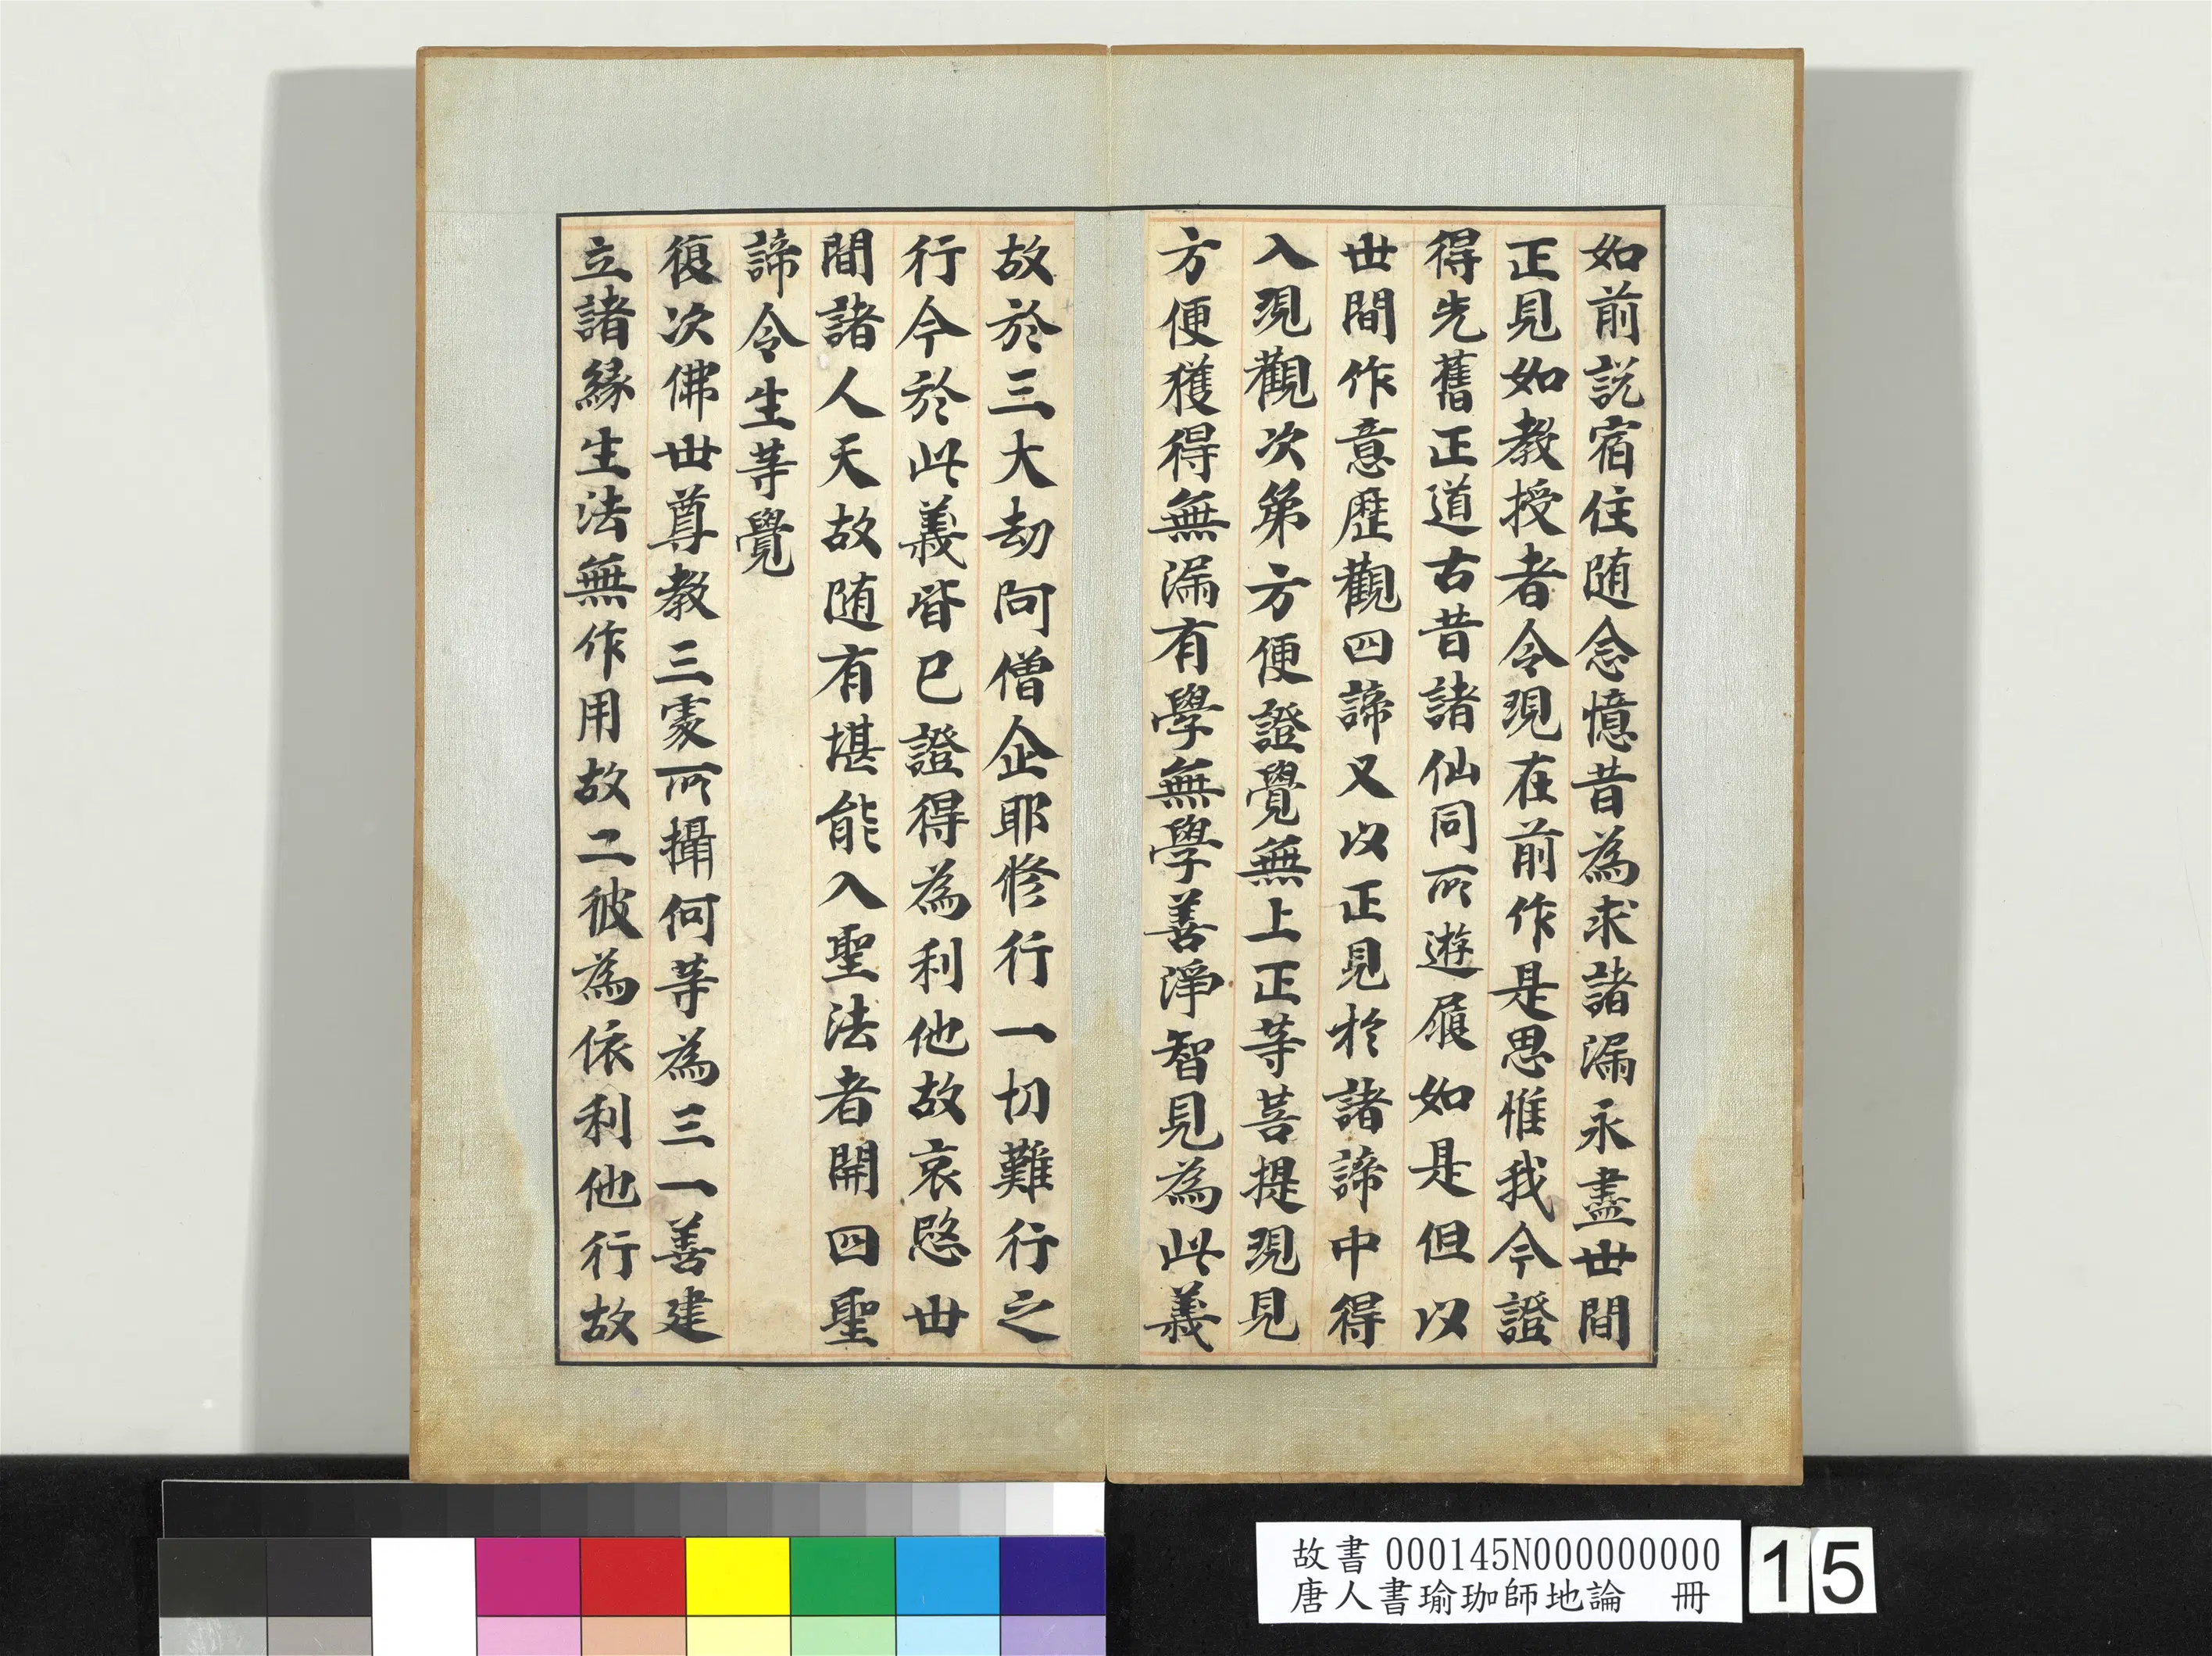 如前説宿住随念憶昔為求諸漏永盡世間
正見如教授者令現在前作是思惟我今證
得先舊正道古昔諸仙同所遊履如是但以
世間作意歷觀四諦又以正見於諸諦中得
入現觀次第方便證覺無上正等菩提現見
方便獲得無漏有學無學善淨智見為此義
故於三大劫阿僧企耶修行一切難行之
行今於此義皆已證得為利他故哀愍世
間諸人天故随有堪能入聖法者開四聖
諦令生等覺
復次佛世尊教三處所攝何等為三一善建
立諸緣生法無作用故二彼為依利他行故
故書 000145N000000000
唐人書瑜珈師地論 冊
15